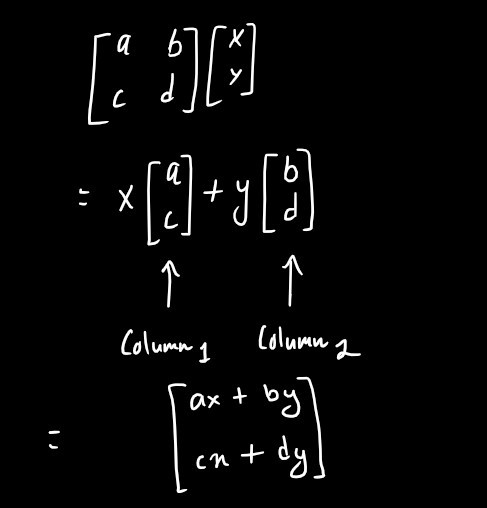 [a b] [x]
[c d] [y]
= x [a] + y [b]
[c] [d]
↑ ↑
Column 1 Column 2
= [ax + by]
[cx + dy]